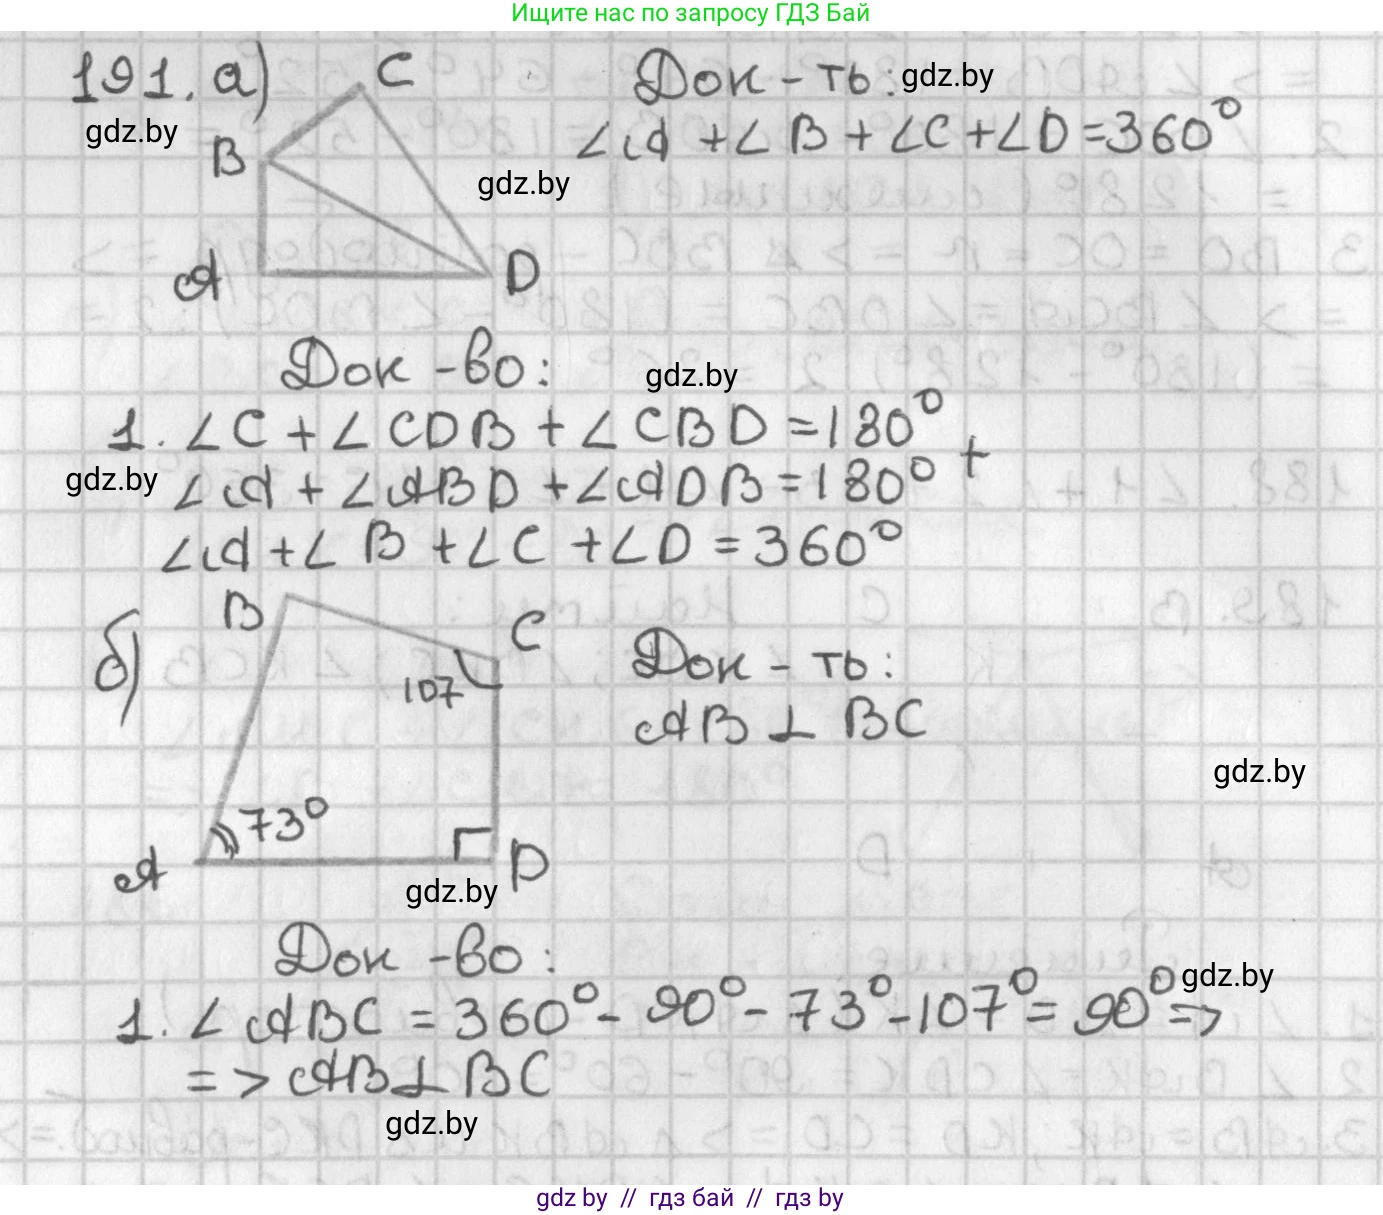 Ищите нас по запросу ГДЗ Бай
191. а)
C
B
A
D
Док-ть: gdz.by
∠A + ∠B + ∠C + ∠D = 360°
gdz.by
gdz.by
Док-во:
gdz.by
1. ∠C + ∠CDB + ∠CBD = 180°
+
gdz.by
∠A + ∠ABD + ∠ADB = 180°
∠A + ∠B + ∠C + ∠D = 360°
б)
B
C
107
73°
A
D
Док-ть:
AB ⊥ BC
gdz.by
gdz.by
Док-во:
gdz.by
1. ∠ABC = 360° - 90° - 73° - 107° = 90° =>
=> AB ⊥ BC
gdz.by
gdz by // гдз бай // гдз by